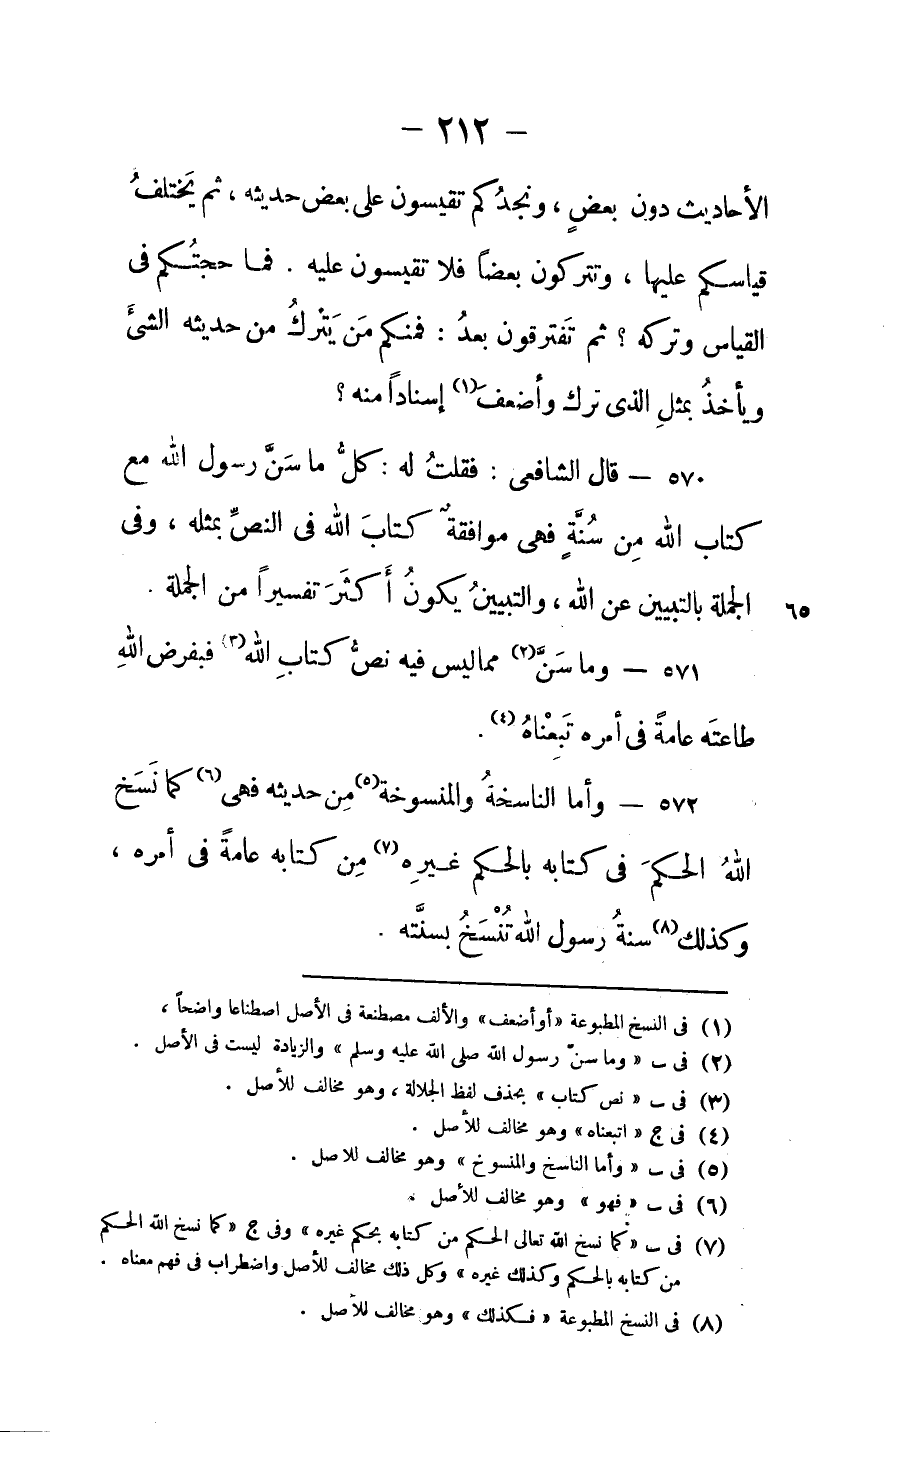 — ٢١٢ —
الأحاديث دون بعضٍ ، ونجدُكم تقيسون على بعض حديثه ، ثم يَختلفُ
قياسكم عليها ، وتتركون بعضاً فلا تقيسون عليه . فما حجتُكم فى
القياس وتركه ؟ ثم تَفترقون بعدُ : فمنكم مَن يَتْركُ من حديثه الشئَ
ويأخذُ بمثلِ الذى ترك وأضعفَ(١) إسناداً منه ؟
٥٧٠ — قال الشافعى : فقلتُ له : كلُّ ما سَنَّ رسول الله مع
كتاب الله مِن سُنَّةٍ فهى موافقةٌ كتابَ الله فى النصِّ بمثله ، وفى
الجملة بالتبيين عن الله ، والتبيينُ يكونُ أَكثَرَ تفسيراً من الجملة . ٦٥
٥٧١ — وما سَنَّ(٢) مما ليس فيه نصُّ كتابِ الله(٣) فبفرض اللهِ
طاعتَه عامةً فى أمره تَبِعْناهُ(٤) .
٥٧٢ — وأما الناسخةُ والمنسوخة(٥) مِن حديثه فهى(٦) كما نَسَخ
اللهُ الحكمَ فى كتابه بالحكم غيرِه(٧) مِن كتابه عامةً فى أمره ،
وكذلك(٨) سنةُ رسول الله تُنْسَخُ بسنَّته .
(١) فى النسخ المطبوعة «أو أضعف» والألف مصطنعة فى الأصل اصطناعا واضحاً ،
(٢) فى ب « وما سنّ رسول الله صلى الله عليه وسلم » والزيادة ليست فى الأصل .
(٣) فى ب « نص كتاب » بحذف لفظ الجلالة ، وهو مخالف للأصل .
(٤) فى ج « اتبعناه » وهو مخالف للأصل .
(٥) فى ب « وأما الناسخ والمنسوخ » وهو مخالف للاصل .
(٦) فى ب « فهو » وهو مخالف للأصل .
(٧) فى ب «كما نسخ الله تعالى الحكم من كتابه بحكم غيره » وفى ج «كما نسخ الله الحكم
من كتابه بالحكم وكذلك غيره » وكل ذلك مخالف للأصل واضطراب فى فهم معناه .
(٨) فى النسخ المطبوعة « فكذلك » وهو مخالف للأصل .